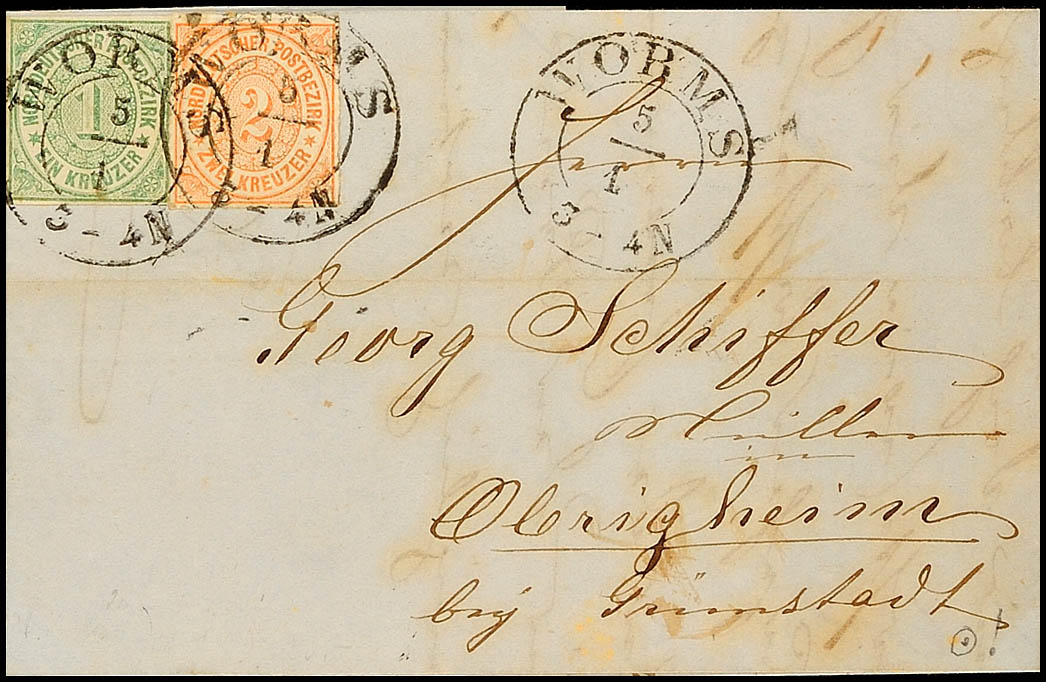 NORDDEUTSCHER POSTBEZIRK
1
EIN KREUZER
NORDDEUTSCHER POSTBEZIRK
2
ZWEI KREUZER
WORMS
5
1
3 - 4N
WORMS
5
1
3 - 4N
WORMS
5
1
3 - 4N
Herrn
Georg Schiffer
Müller
in
Obrigheim
bey Grünstadt
!